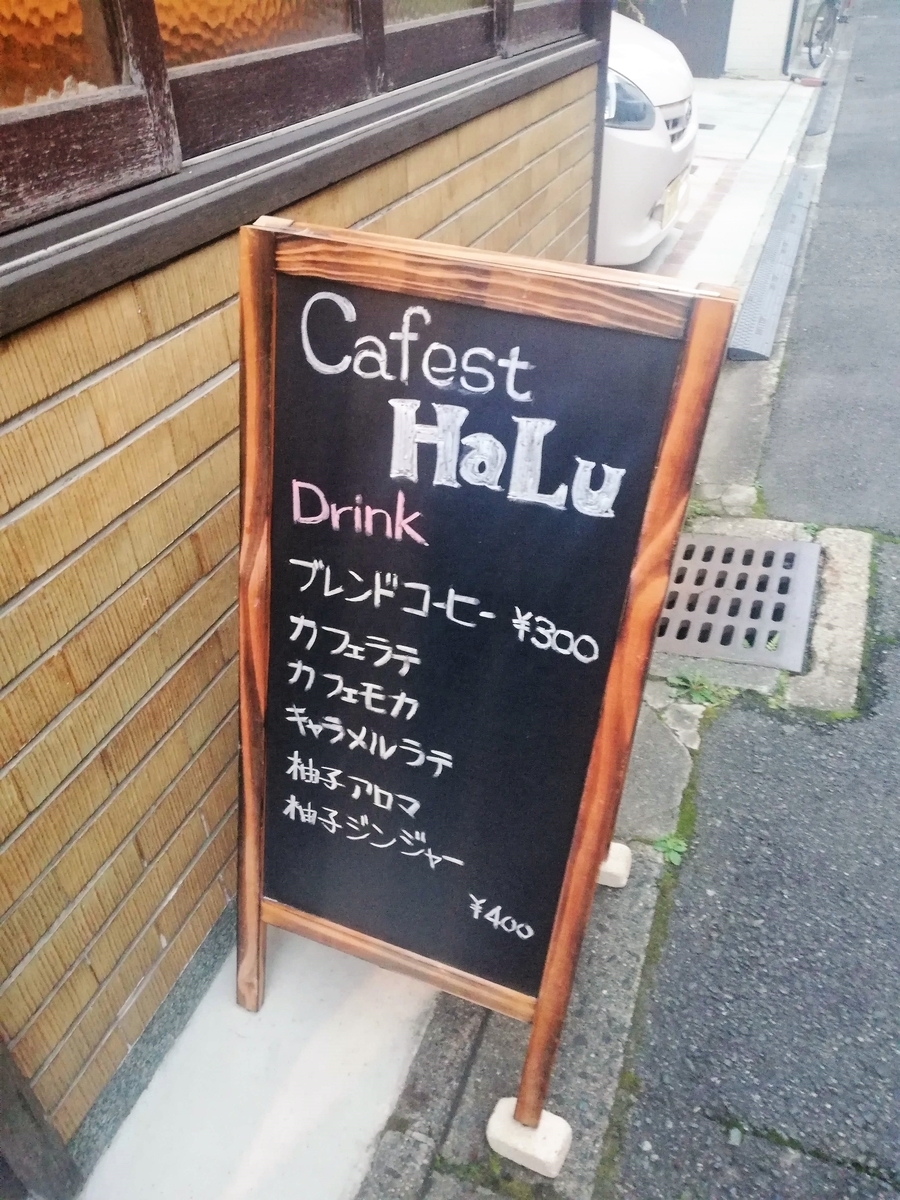 Cafest
HaLu
Drink
ブレンドコーヒー ¥300
カフェラテ
カフェモカ
キャラメルラテ
柚子アロマ
柚子ジンジャー
¥400